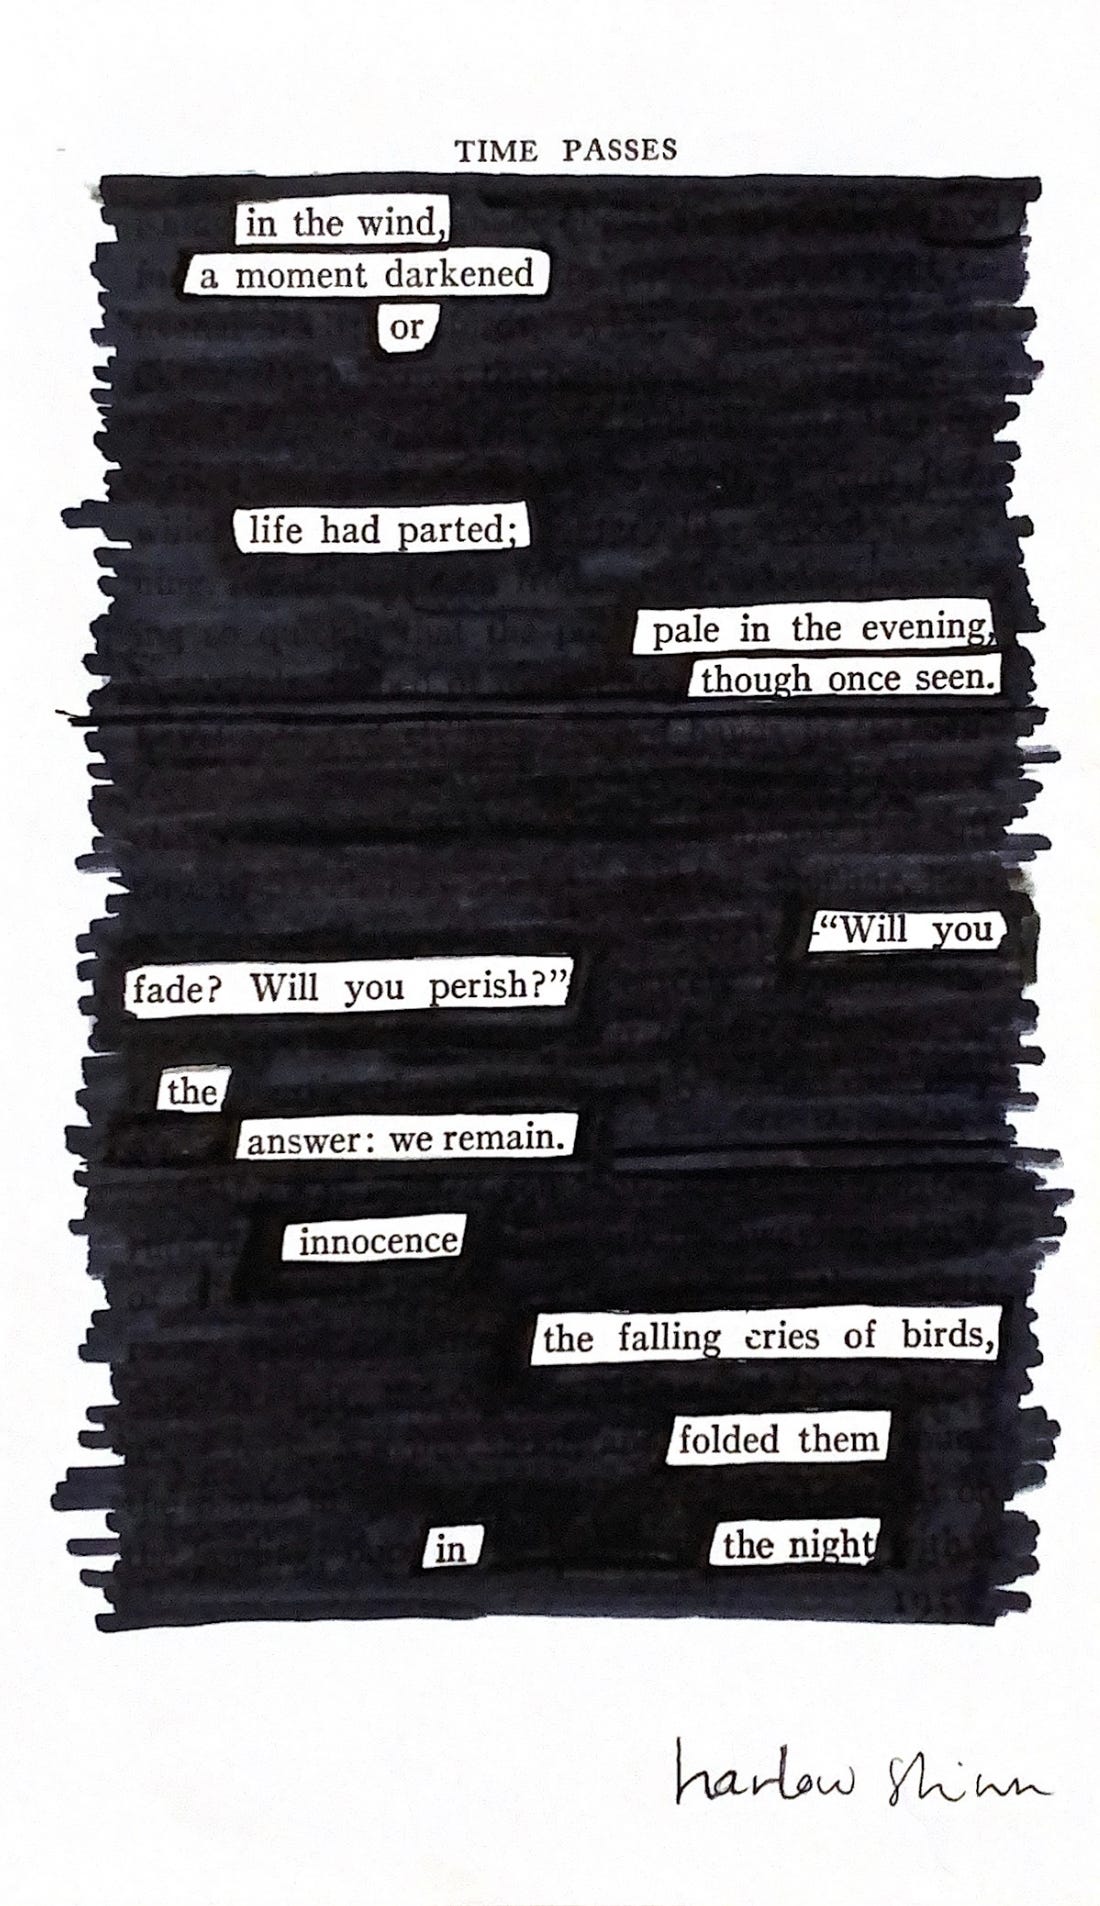 TIME PASSES
in the wind,
a moment darkened
or
life had parted;
pale in the evening,
though once seen.
“Will you
fade? Will you perish?”
the
answer: we remain.
innocence
the falling cries of birds,
folded them
in the night
harlow shinn